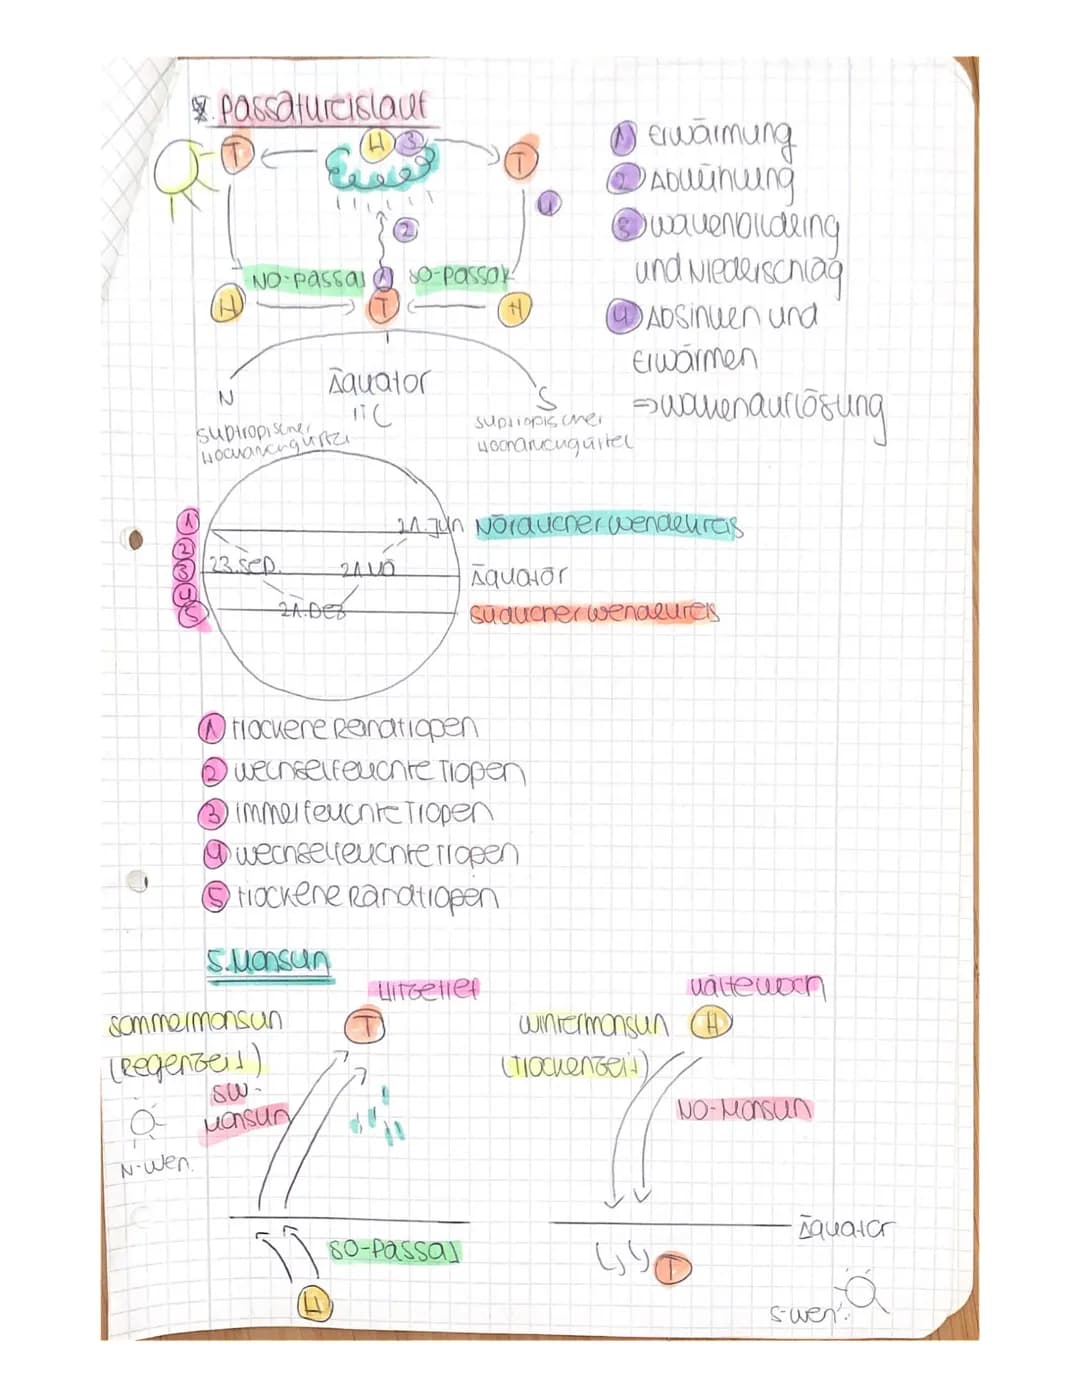 4. Passatkreislauf
T H 3 T
2
4
NO-Passat 1 SO-Passat
H T H
1 Erwärmung
2 Abkühlung
3 Wolkenbildung
und Niederschlag
4 Absinken und
Erwärmen
⇒ Wolkenauflösung
N Äquator S
ITC
subtropischer
Hochdruckgürtel
subtropischer
Hochdruckgürtel
1
2
3
4
5
21. Jun Nördlicher Wendekreis
23. Sep. 21. Mä Äquator
21. Dez Südlicher Wendekreis
1 trockene Randtropen
2 wechselfeuchte Tropen
3 immerfeuchte Tropen
4 wechselfeuchte Tropen
5 trockene Randtropen
5. Monsun
Hitzetief
Sommermonsun T
(Regenzeit)
SW-
Monsun
N-Wen.
SO-Passat
H
Kältehoch
Wintermonsun H
(Trockenzeit)
NO-Monsun
Äquator
T
S-Wen.